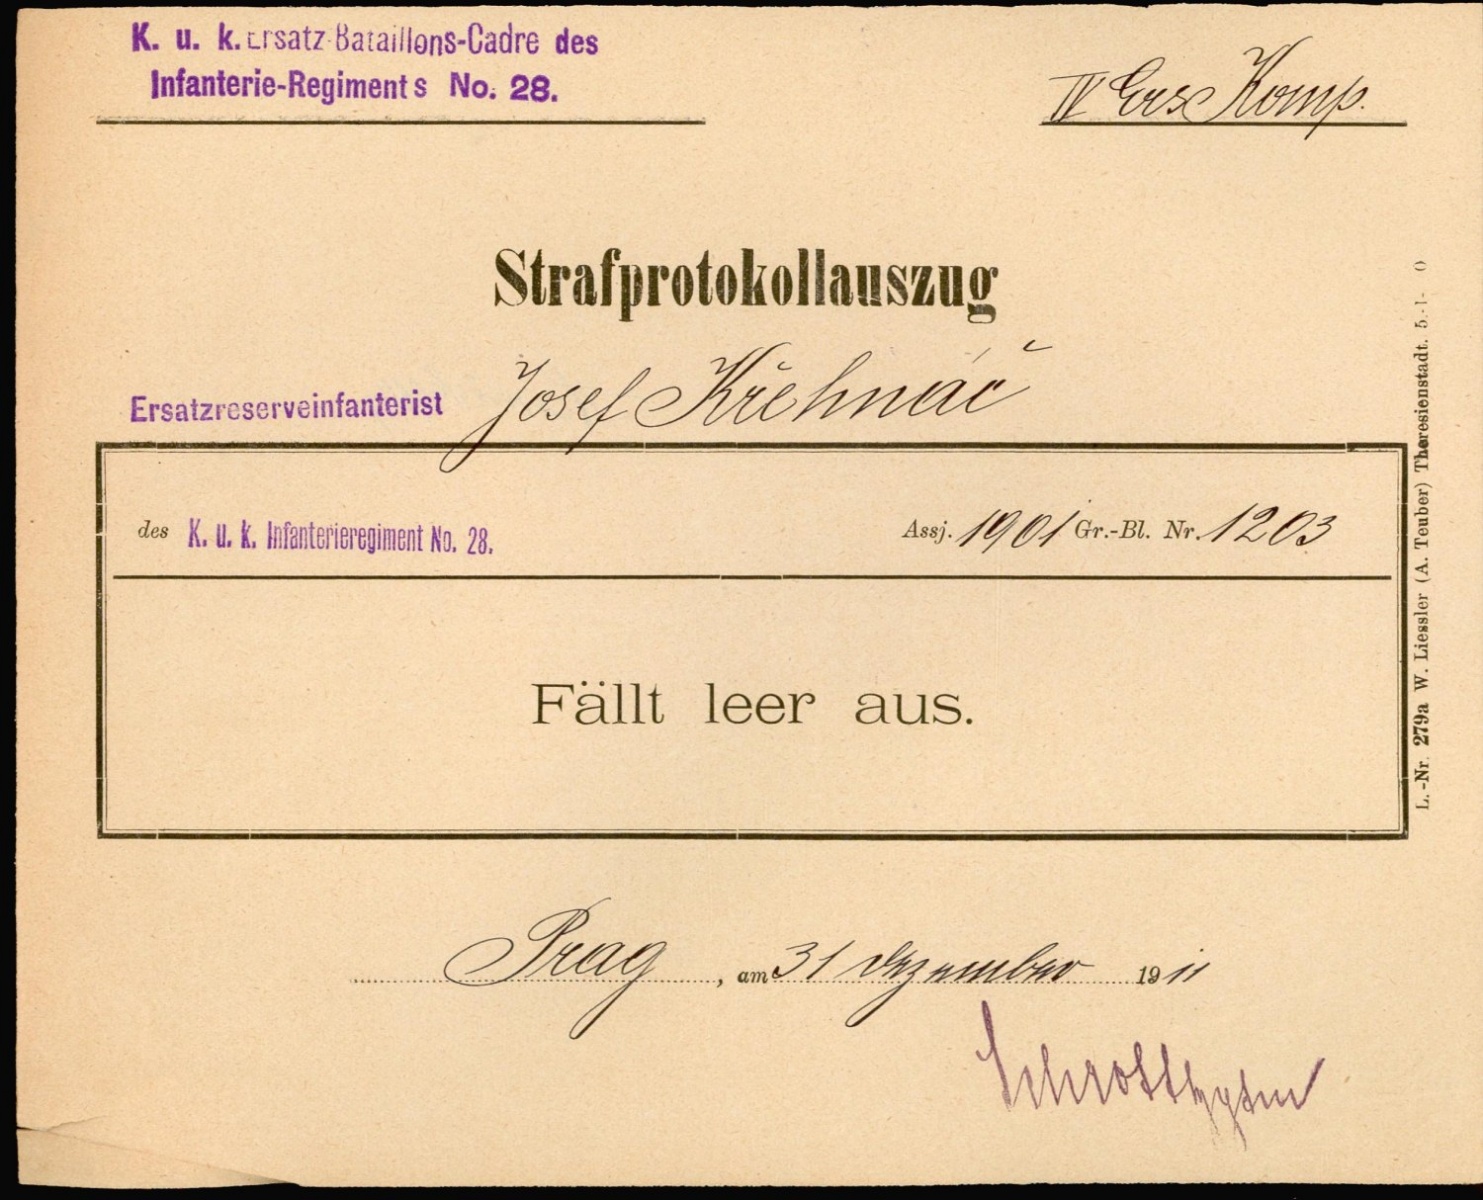 K. u. k. Ersatz-Bataillons-Cadre des
Infanterie-Regiments No. 28.
IV Ers Komp.
Strafprotokollauszug
Ersatzreserveinfanterist Josef Křehnáč
des K. u. k. Infanterieregiment No. 28. Assj. 1901 Gr.-Bl. Nr. 1203
Fällt leer aus.
Prag, am 31 Dezember 1911
L.-Nr. 279a W. Liessler (A. Teuber) Theresienstadt.